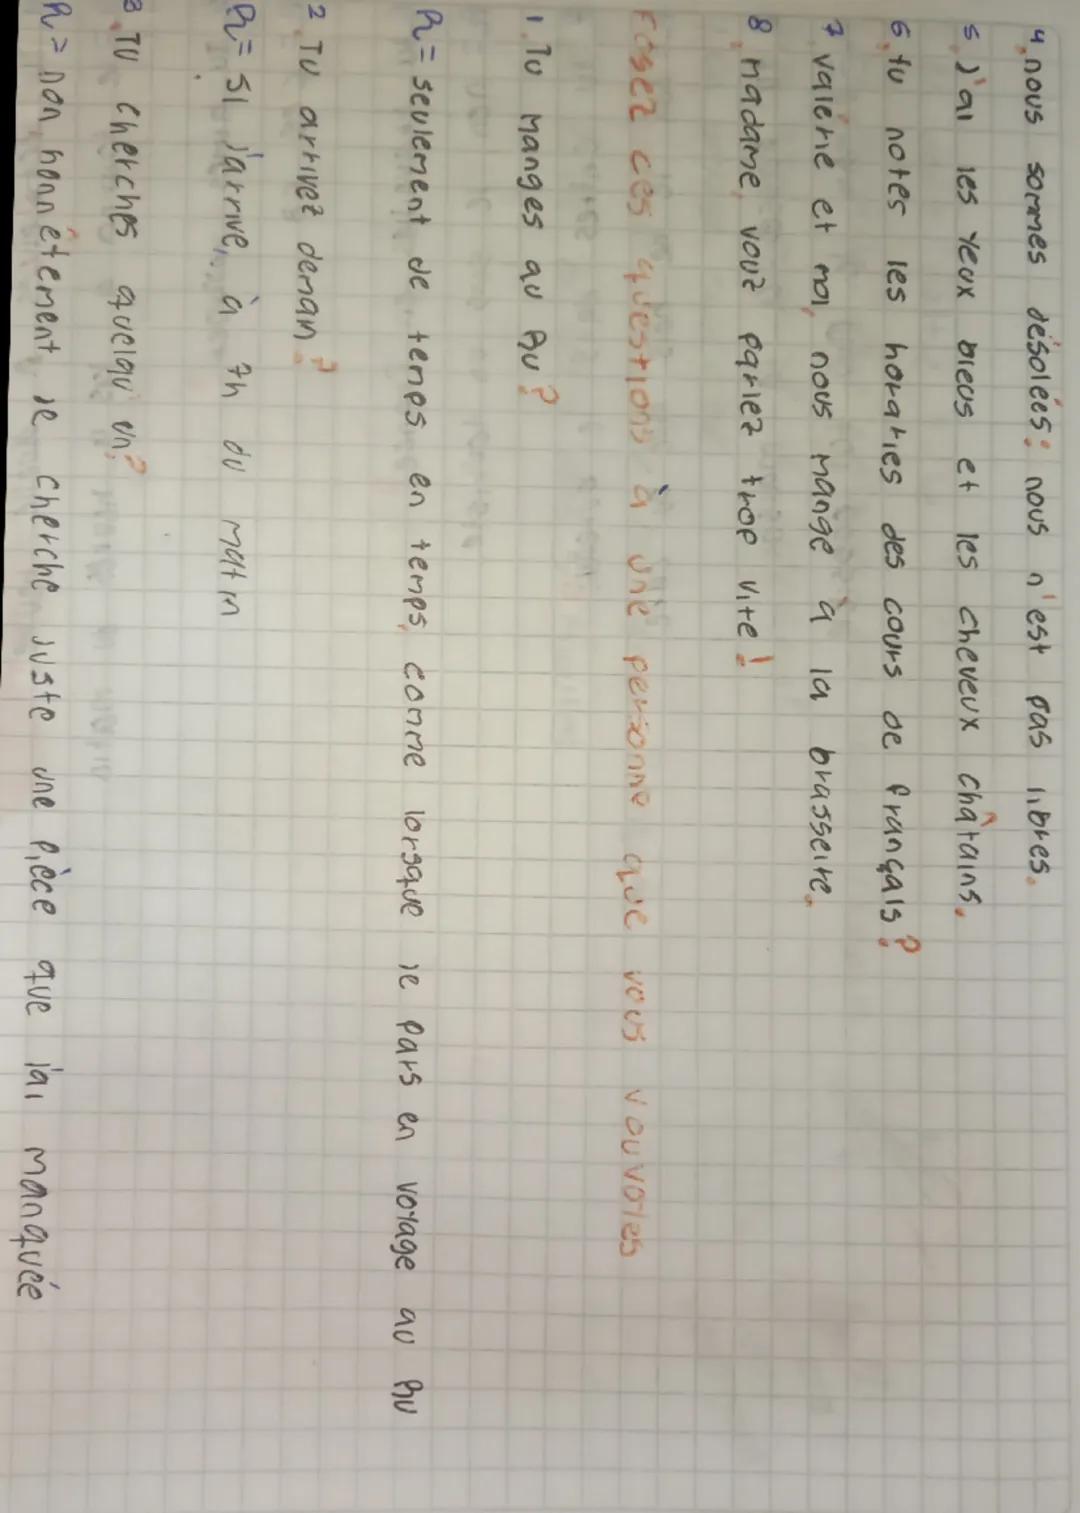 4. nous sommes désolées: nous n'est pas libres.
5. J'ai les yeux bleus et les cheveux châtains.
6. tu notes les horaries des cours de français?
7 valérie et moi, nous mange à la brasseire.
8. madame, vouz parlez trop vite!
Posez ces questions à une personne que vous vouvoies
1. Tu manges au Ru?
R= seulement de temps en temps, comme lorsque je pars en voyage au Ru
2. Tu arrivez deman?
R= si, j'arrive, à 7h du matin
3. Tu cherches quelqu'un?
R= non, honnêtement, je cherche juste une pièce que j'ai manquée